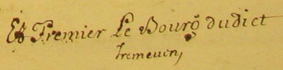 Et Premier Le Bourg dudict
Tremeven